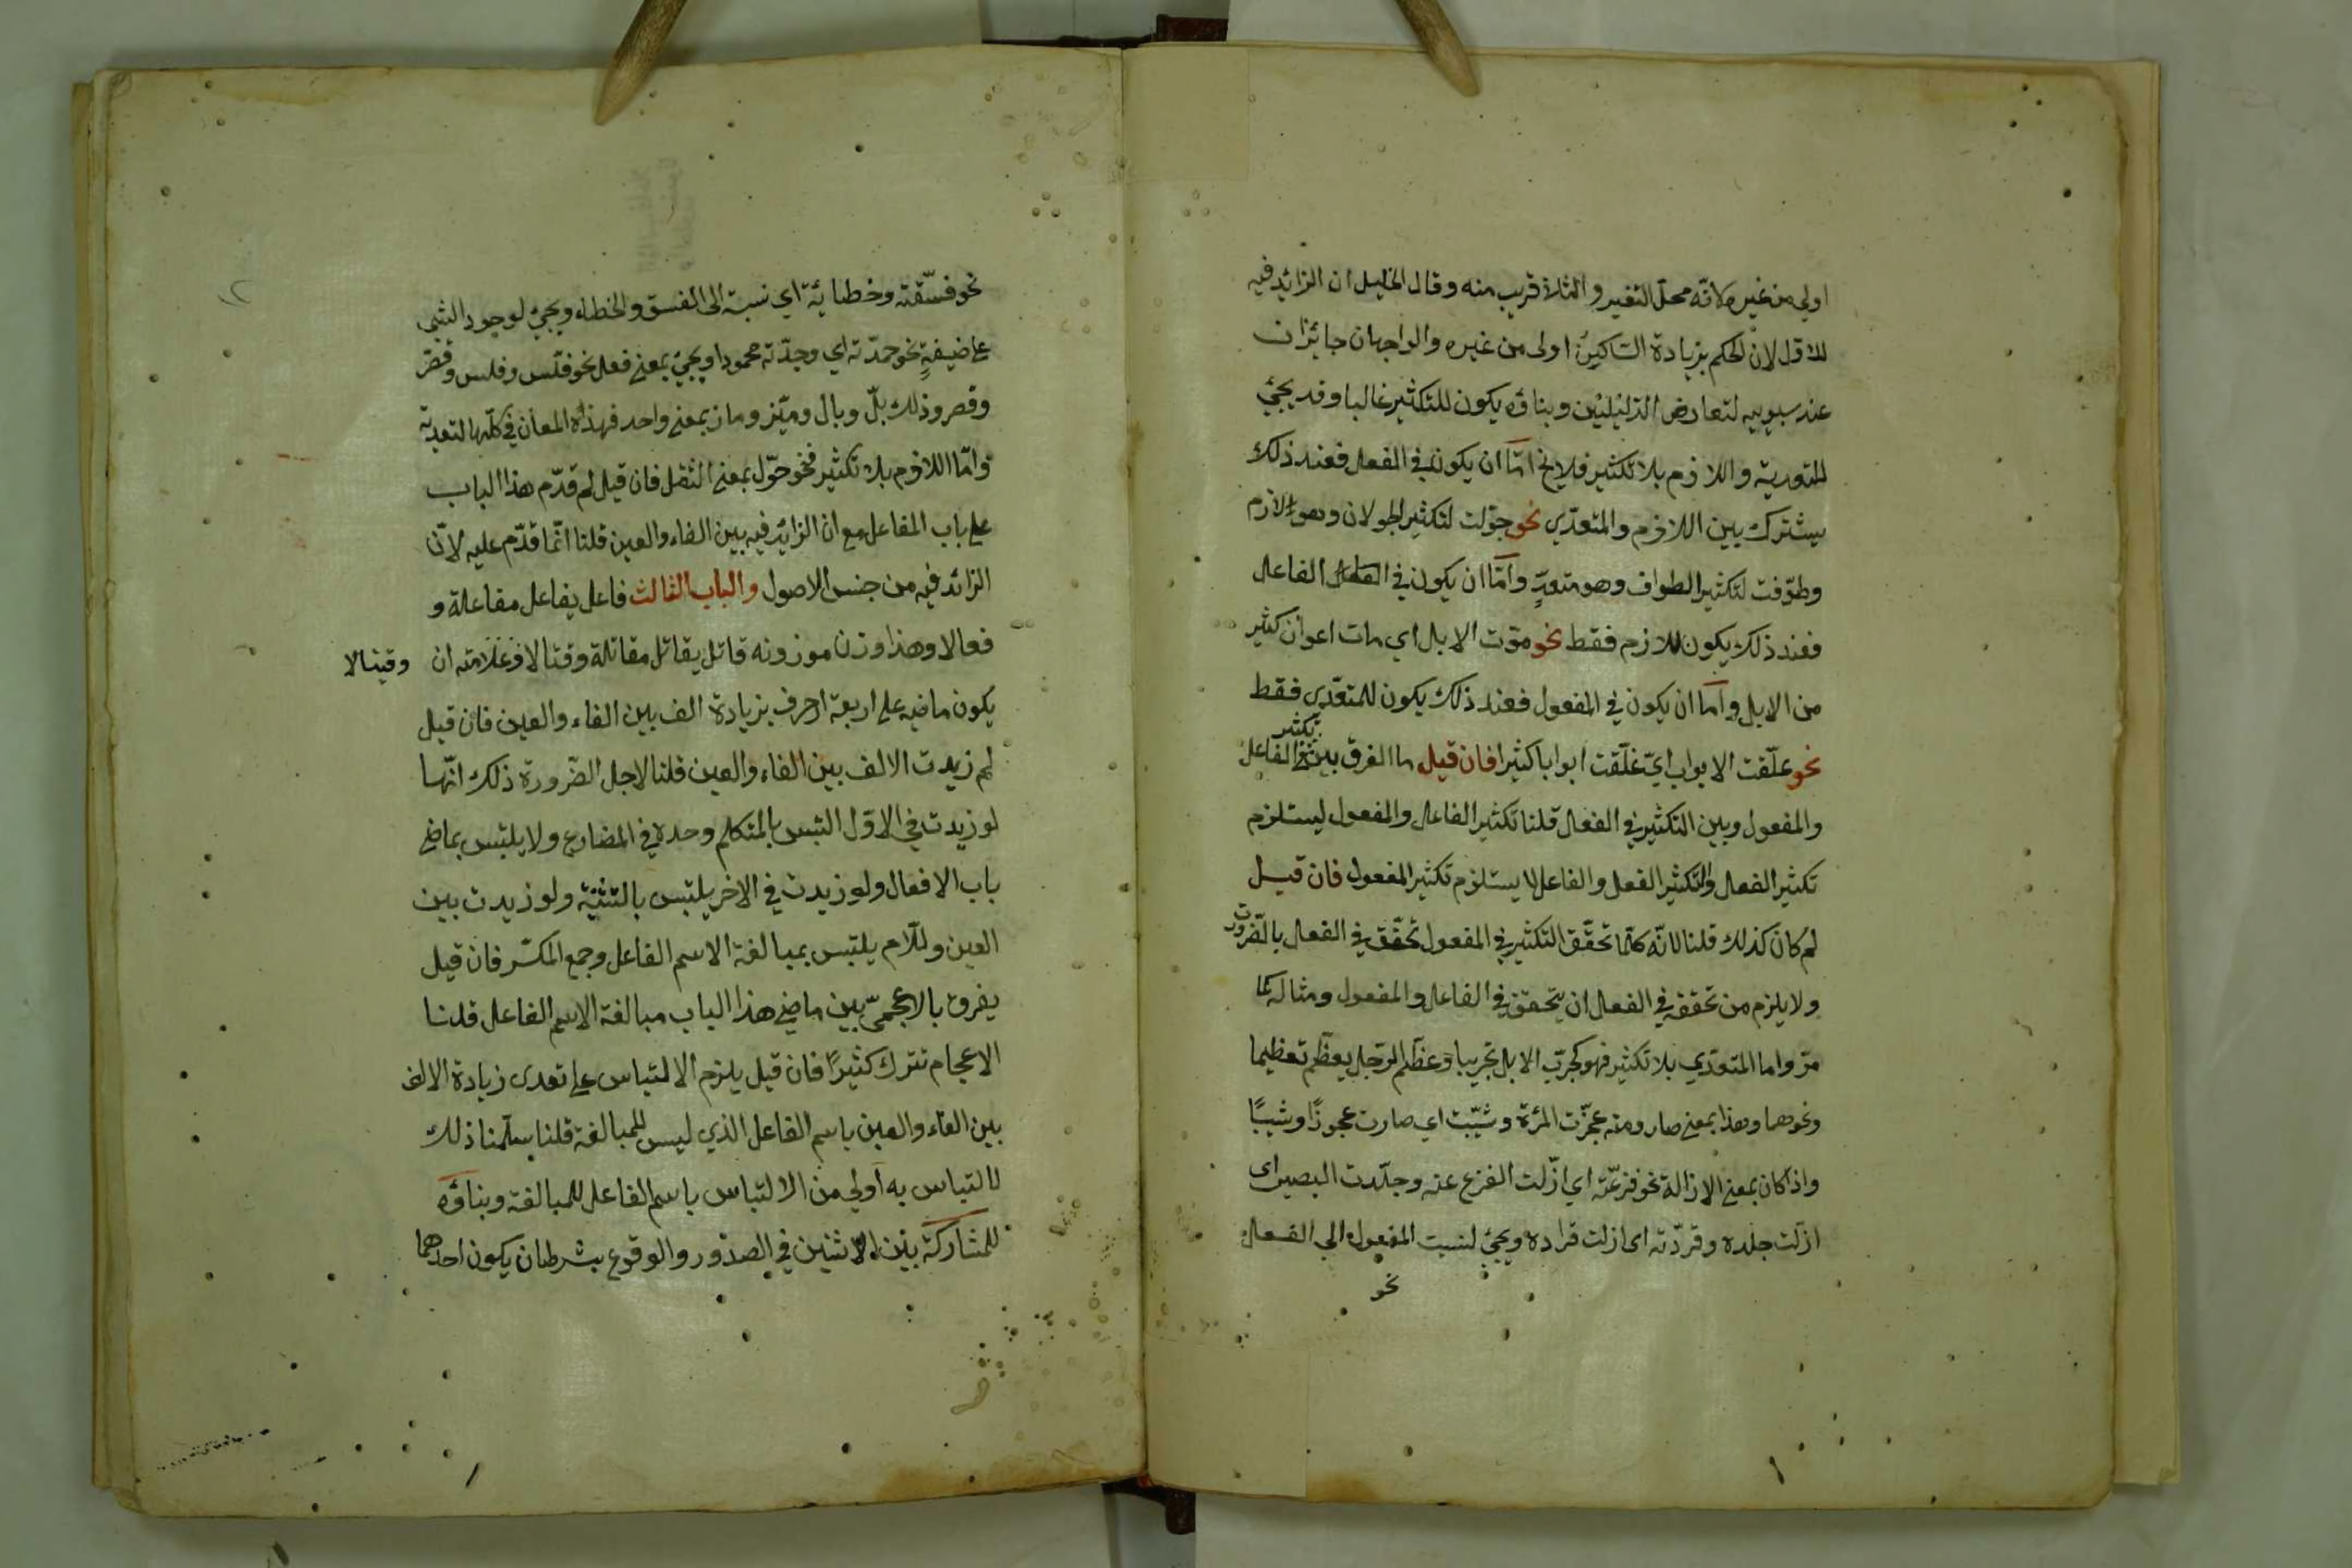 اولي من غيره لانّه محلّ التغير و الثلاثة قريب منه وقال الخليل ان الزائد فيه
للاول لان الحكم بزيادة الساكن اولى من غيره والواجهان جائزان
عند سيبويه لتعارض الدليلين وبناؤه يكون للتكثير غالبا وقد يجئ
للتعدية واللازم بلا تكثير فلا يخ امّا ان يكون في الفعل فعند ذلك
يشترك بين اللازم والمتعدّي نحو جوّلت لتكثير الجولان وهو لازم
وطوّفت لتكثير الطواف وهو متعدٍّ وامّا ان يكون في الفاعل
فعند ذلك يكون للازم فقط نحو موّت الابل اي مات اعوان كثير
من الابل وامّا ان يكون في المفعول فعند ذلك يكون للمتعدّي فقط
نحو غلّقت الابواب اي غلّقت ابوابا كثيرا فان قيل ما الفرق بين تكثير الفاعل
والمفعول وبين التكثير في الفعل قلنا تكثير الفاعل والمفعول ليستلزم
تكثير الفعل والتكثير الفعل والفاعل لا يستلزم تكثير المفعول فان قيل
لم كان كذلك قلنا لانّه كلّما تحقّق التكثير في المفعول تحقّق في الفعل بالضّرورت
ولا يلزم من تحققه في الفعل ان يتحقق في الفاعل والمفعول ومثاله كما
مرّ واما المتعدّي بلا تكثير فهو كجرّب الابل تجريبا وعظّم الرّجل يعظّم تعظيما
ونحوهما وهذا بمعني صار ومنه عجزّت المرئة وشيّبت اي صارت عجوزًا وشيبًا
واذا كان بمعني الازالة نحو فزعّته اي ازّلت الفزع عنه وجلّدت البصير اى
ازلت جلده وقرّدته اى ازلت قراده ويجئ لنسبت المفعول الي الفعل
نحو
نحو فسّقته وخطايئة اي نسبته الى الفسق والخطاء ويجئ لوجود الشئ
على ضيفةٍ نحو حمدّته اي وجدّته محمودا ويجئ بمعني فعل نحو فلّس وفلس وقصّر
وقصر وذلك بلّ وبال وميّز وماز بمعني واحد فهذه المعان في كلّها لتعدية
وامّا اللازم بلا تكثير فنحو حوّل بمعني النقل فان قيل لم قدّم هذا الباب
على باب المفاعل مع ان الزائد فيه بين الفاء والعين قلنا انّما قدّم عليه لانّ
الزائد فيه من جنس الاصول والباب الثالث فاعل يفاعل مفاعلة و
فعالا وهذا وزن موزونه قاتل يقاتل مقاتلة وقتالا فعلامته ان
وقيتالا
يكون ماضيه على اربعة احرف بزيادة الف بين الفاء والعين فان قيل
لم زيدت الالف بين الفاء والعين قلنا لاجل الضّرورة ذلك انّها
لو زيدت في الاوّل التبس بالمتكلم وحده في المضارع ولا يلتبس بماضي
باب الافعال ولو زيدت في الاخر يلتبس بالتثنية ولو زيدت بين
العين وللّام يلتبس بمبالغة الاسم الفاعل وجمع المكسّر فان قيل
يفرق بالاعجمىّ بين ماضي هذا الباب مبالغة الاسم الفاعل قلنا
الاعجام تترك كثيرًا فان قيل يلزم الالتباس على تعدى زيادة الالف
بين الفاء والعين باسم الفاعل الذي ليس للمبالغة قلنا سلّمنا ذلك
لالتباس به اولي من الالتباس باسم الفاعل للمبالغة وبناؤه
للمشاركة بين الاثنين في الصدور والوقوع بشرط ان يكون احدهما